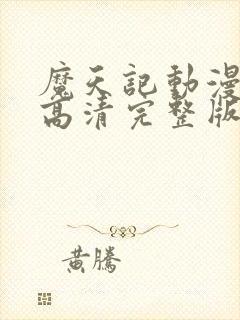 魔天記動漫
高清完整版
黄騰